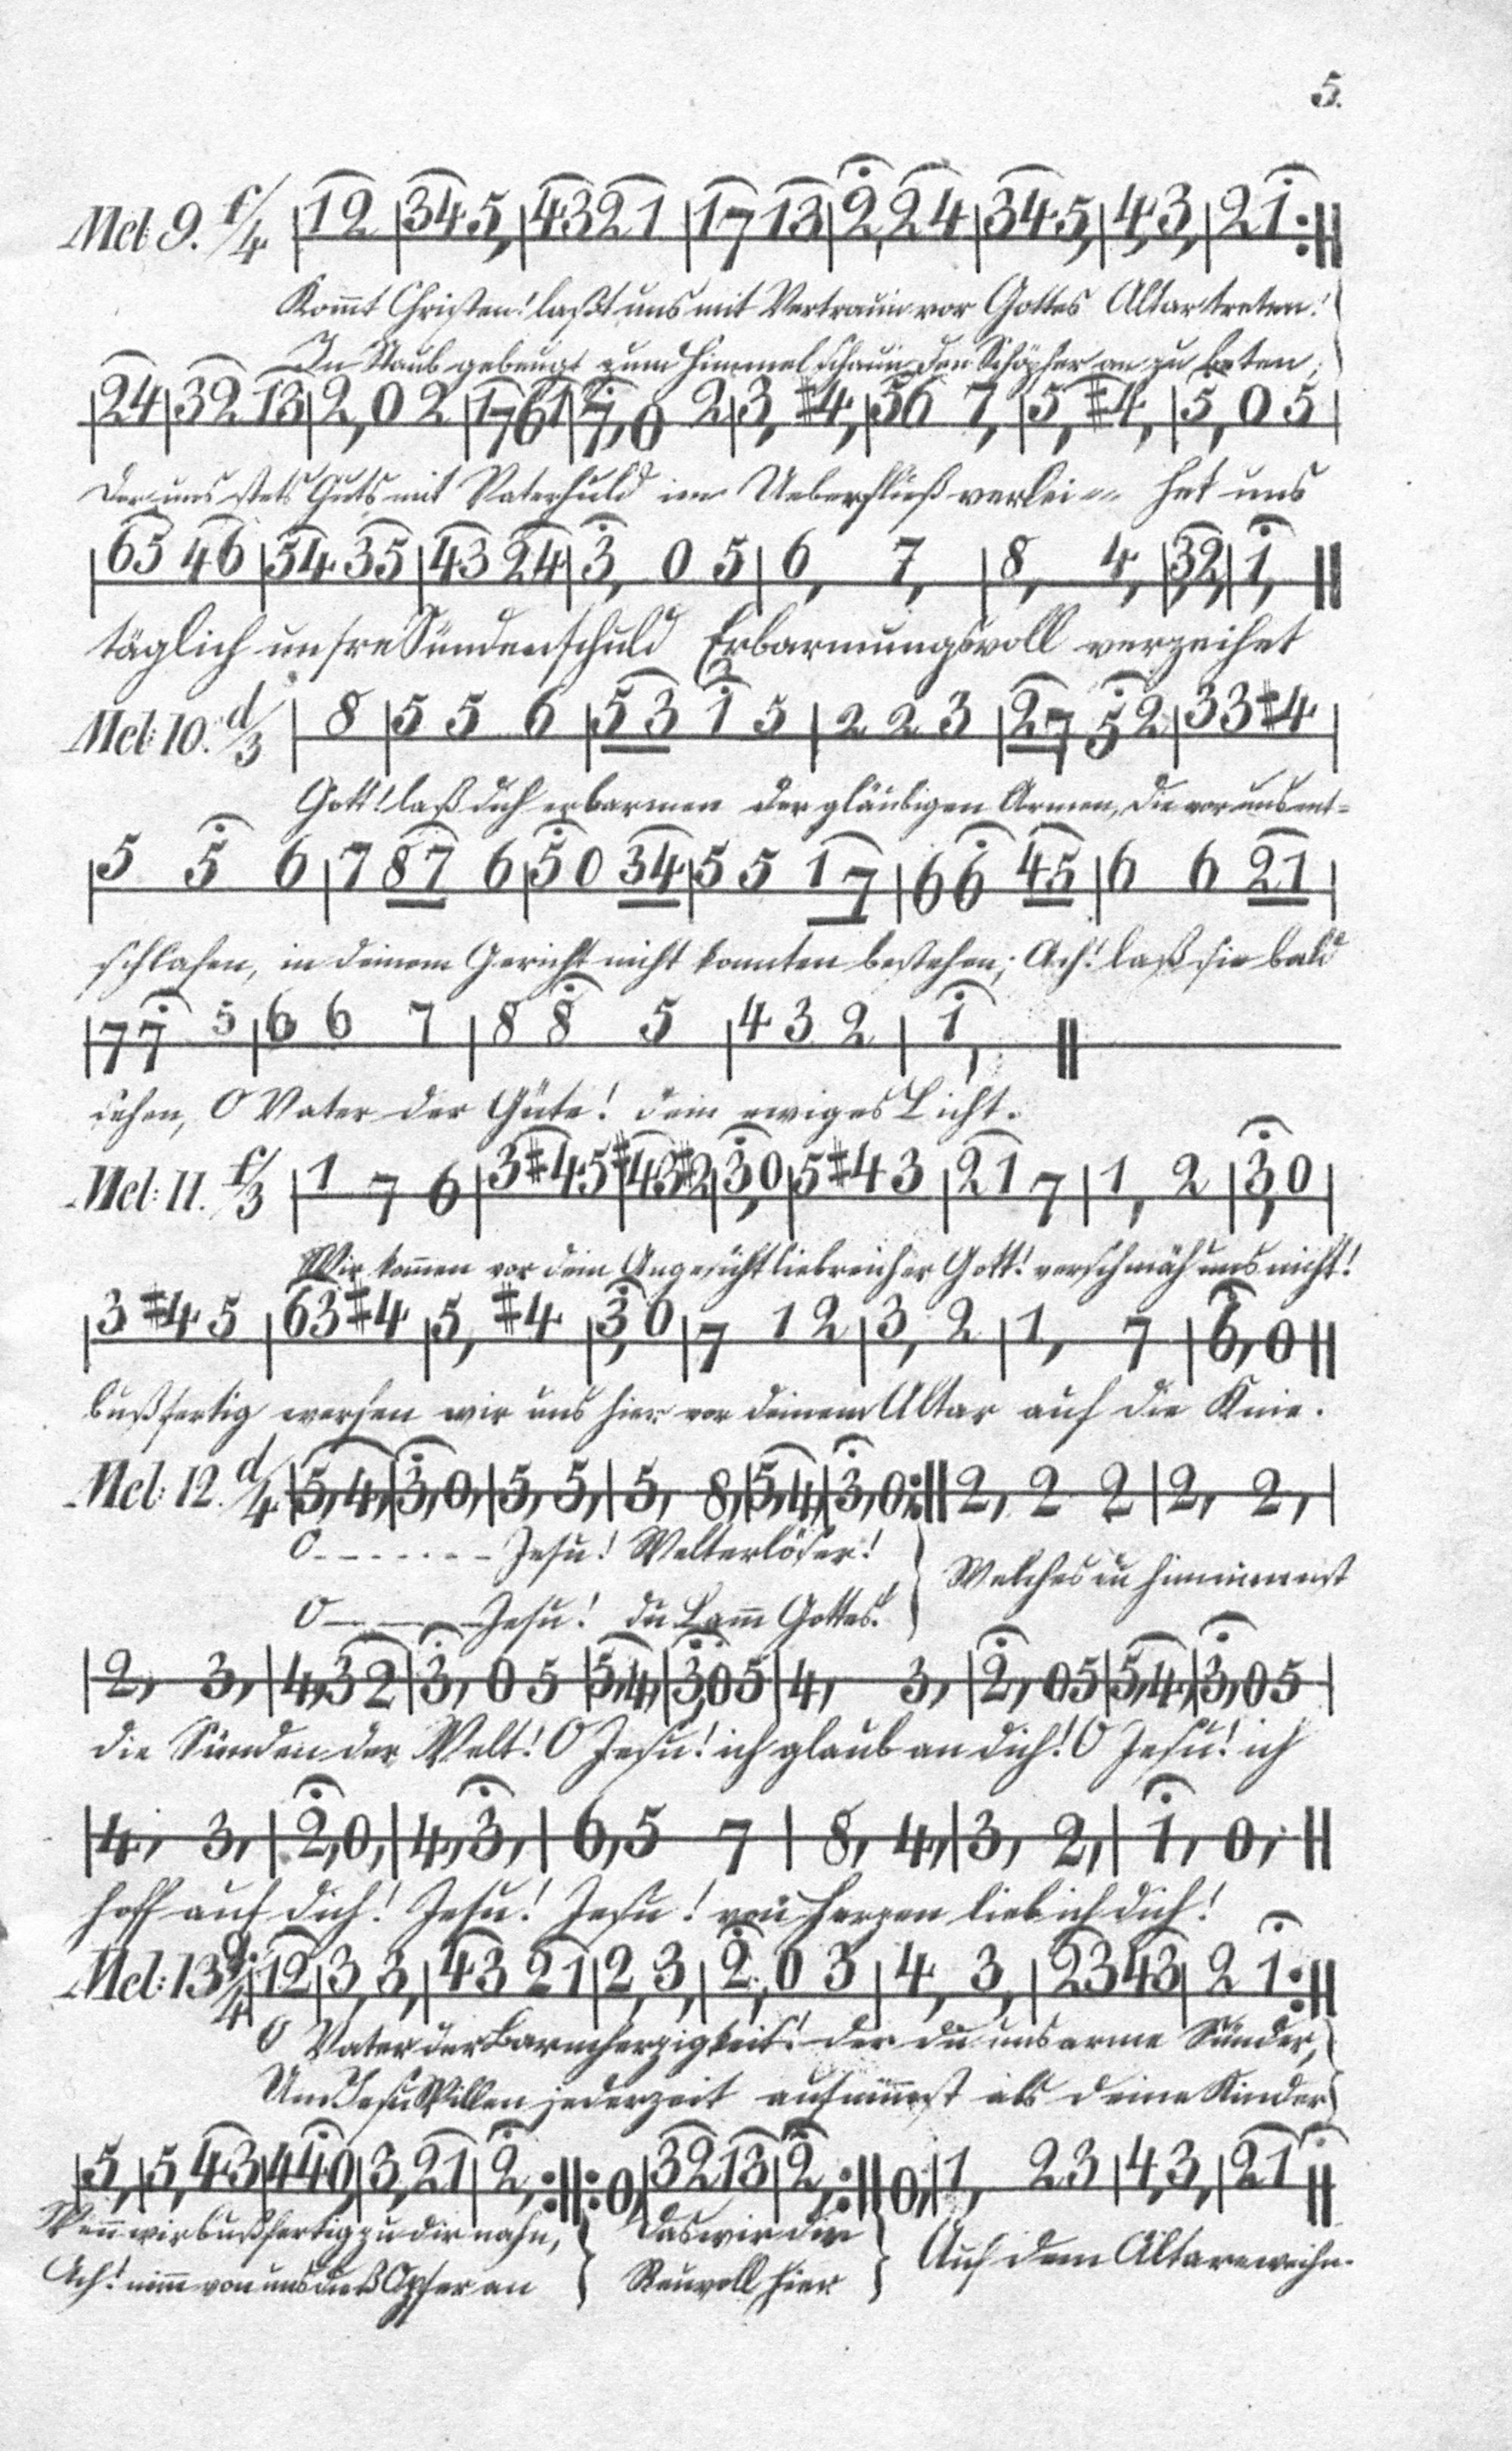 5.
Mel: 9. f/4 |12|345,|4321|1713|2,24|345,|4,3,|21:||
Kom̅t Christen! laßt uns mit Vertraun vor Gottes Altar treten!
In Staub gebeugt zum Himmel schaun, den Schöpfer an zu beten;
|24|32 13|2,02|1761|7,0 2|3, #4,|56 7,|5, #4,|5,05|
Der uns stets Guts mit Vaterhuld im Ueberfluß verlei-- het uns
|65 46|54 35|43 24|3, 0 5|6, 7,|8, 4,|3,2,|1,||
täglich unsre Sündenschuld Erbarmungsvoll verzeihet
Mel: 10. d/3 |8|5 5 6|53 1 5|2 2 3|27 5 2|33#4|
Gott! laß dich erbarmen der gläubigen Armen, die vor uns ent=
|5 5 6|7 87 6|50 34|55 17|66 45|6 6 21|
schlafen, in deinem Gericht nicht konnten bestehen; Ach! laß sie bald
|77 5|6 6 7|8 8 5|4 3 2|1,||
sehen, O Vater der Güte! dein ewiges Licht.
Mel: 11. f/3 |1 7 6|3#45|#43#2|3,0|5#43|21 7|1, 2|3,0|
Wir kom̅en vor dein Angesicht liebreicher Gott! verschmäh uns nicht!
|3 #4 5|63#4|5, #4|3,0|7 1 2|3, 2|1, 7|6,0||
bußfertig werfen wir uns hier vor deinem Altar auf die Knie.
Mel: 12. d/4 |5,4,|3,0,|5,5,|5, 8,|5,4,|3,0:||2, 2 2|2, 2,|
O-------Jesu! Welterlöser!
Welches du hinnimmst
O------Jesu! du Lam̅ Gottes!
|2, 3,|4,32|3, 0 5|5,4,|3,05|4, 3,|2, 05|5,4,|3,05|
die Sünden der Welt! O Jesu! ich glaub an dich! O Jesu! ich
|4, 3,|2,0,|4,3,|6,5 7|8, 4,|3, 2,|1, 0,||
hoff auf dich! Jesu! Jesu! von Herzen lieb ich dich!
Mel: 13 /4 |12|3,3,|43 21|2,3,|2,0 3|4, 3,|2343|2 1:||
O Vater der Barmherzigkeit! der du uns arme Sünder,
Um Jesu Willen jederzeit aufnim̅st als deine Kinder
|5,|5,43|440,|3,21|2,:||:0,|3213|2,:||0,|1, 23|4,3,|21||
Wenn wir bußfertig zu dir nahn,
Das wir dir
Auf dem Altare weihn.
Ach! nim̅ von uns dieß Opfer an
Reuvoll hier